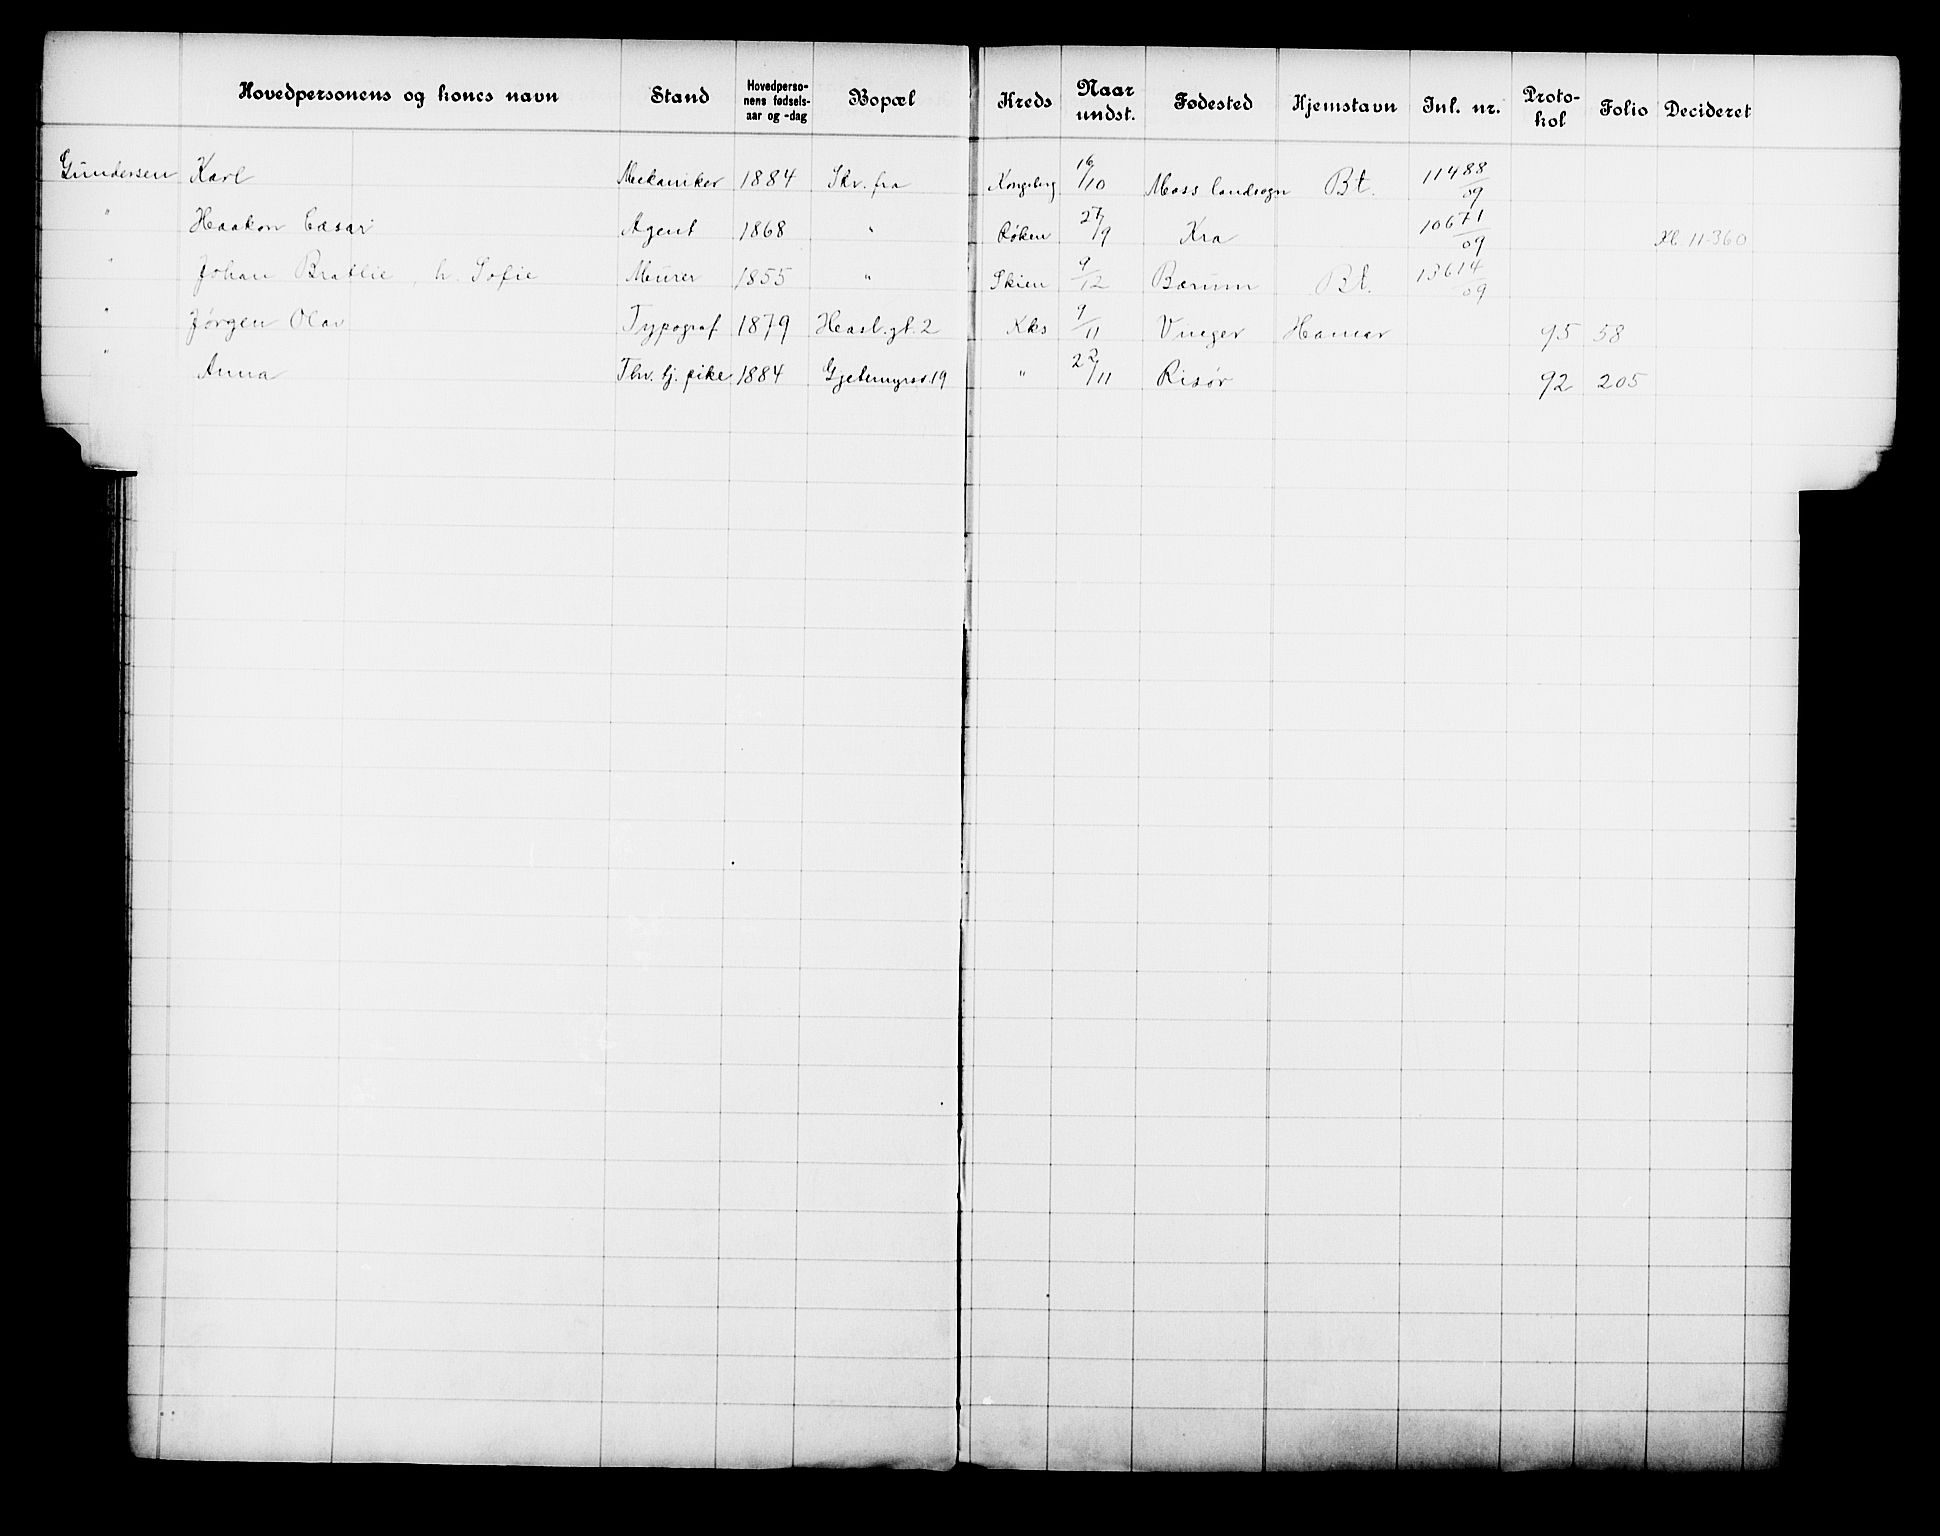 Hovedpersonens og kones navn Stand Hovedpersonens fødselsaar og -dag Bopæl Kreds Naar undst. Fødested Hjemstavn Jnl. nr. Protokol Folio Decideret
Gundersen Karl Mekaniker 1884 Skr. fra Kongsberg 16/10 Moss landsogn Bt. 11488/09
" Haakon Cæsar Agent 1868 " Røken 27/9 Kra 10671/09 11-360
" Johan Bratlie, h. Sofie Murer 1855 " Skien 9/12 Bærum Bt. 13614/09
" Jørgen Olav Typograf 1879 Hasl.gt. 2 Kks 9/11 Vinger Hamar 95 58
" Anna Thv. tj. pike 1884 Gjetemyrsv 19 " 22/11 Risør 92 205